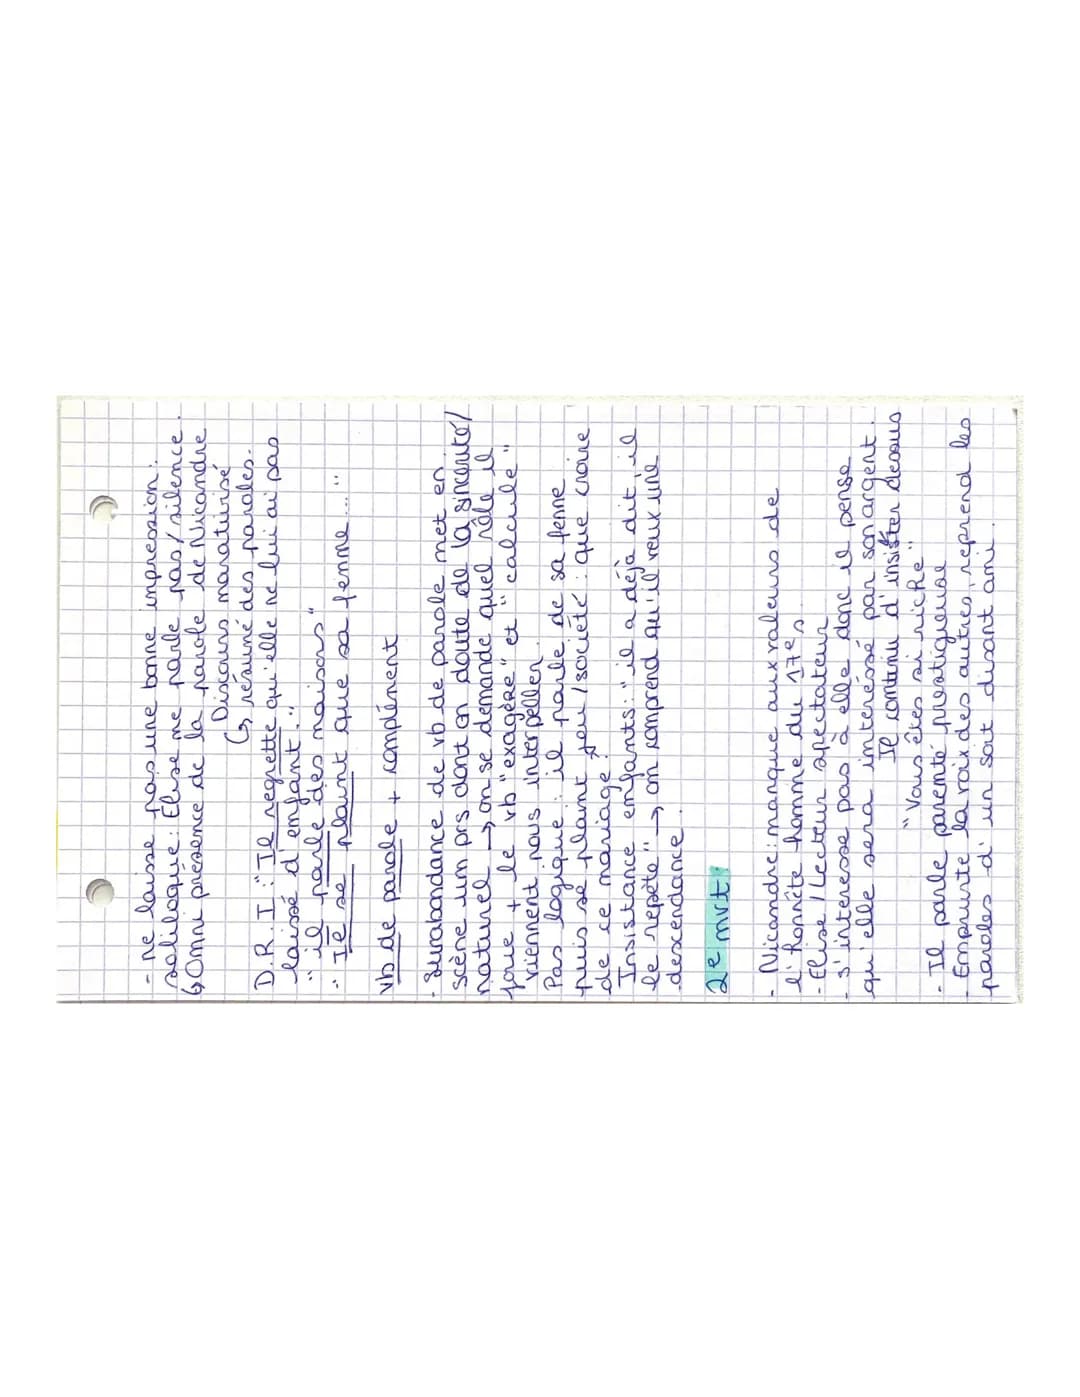 - Ne laisse pas une bonne inpression :
soliloque : Élise ne parle pas / silence.
↳ Omni présence de la parole de Nicandre
Discours narrativisé
↳ résumé des paroles.
D.R.I : "Il regrette qu'elle ne lui ai pas
laissé d'enfant."
"il parle des maisons"
"Il se plaint que sa femme...."
vb de parole + complément
- Surabondance de vb de parole met en
scène un prs dont on doute de la sincérité/
naturel → on se demande quel rôle il
joue + le vb "exagère" et "calcule"
viennent nous interpeller.
Pas logique : il parle de sa femme
puis se plaint jeu / société : que croire
de ce mariage ?
Insistance enfants : "il a déjà dit, il
le repète" → on comprend qu'il veux une
descendance.
2e mvt :
- Nicandre : manque aux valeurs de
l'honnête homme du 17e s.
- Elise / Lecteur spectateur
- s'interesse pas à elle donc il pense
qu'elle sera interéssé par son argent.
Il continu d'insister dessus
"Vous êtes si riche"
- Il parle parenté prestigieuse
- Emprunte la voix des autres, reprend les
paroles d'un soit disant ami.